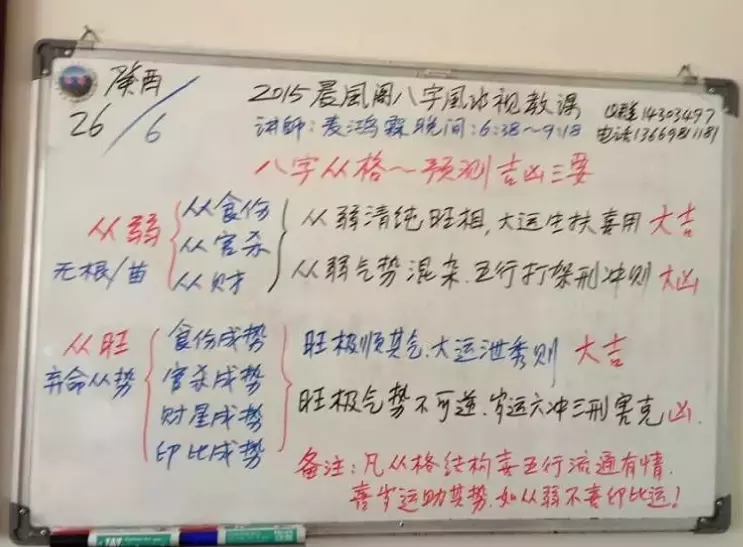 癸酉
26/6
2015晨風阁八字風水视教课
Q群14303497
讲師:麦鸿霖 晚间:6:38~9:18
电话13669811181
八字从格~预测吉凶三要
从弱
无根/苗
从食伤
从官杀
从财
从弱清纯旺相,大运生扶喜用 大吉
从弱气势混杂.五行打架刑冲则 大凶
从旺
弃命从势
食伤成势
官杀成势
财星成势
印比成势
旺极顺其气.大运泄秀则 大吉
旺极气势不可逆.岁运六冲三刑害克凶.
备注:凡从格结构喜五行流通有情.
喜岁运助其势.如从弱不喜印比运!